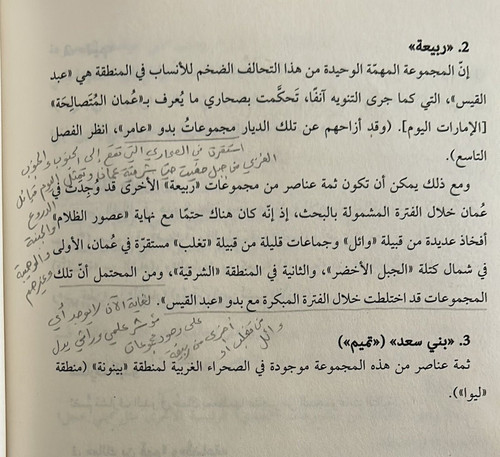 2. «ربيعة»
إنّ المجموعة المهمّة الوحيدة من هذا التحالف الضخم للأنساب في المنطقة هي «عبد
القيس»، التي كما جرى التنويه آنفًا، تَحكَّمت بصحاري ما يُعرف بـ«عُمان المُتَصالِحَة»
[الإمارات اليوم]. (وقد أزاحهم عن تلك الديار مجموعاتُ بدو «عامر»، انظر الفصل
التاسع).
استقرت في الصحاري التي تقع إلى الجنوب والجنوب
الغربي من جبل حفيت حتى شرقية عمان وتمثل اليوم قبائل
الدروع
والجنبة
والوهيبة
وغيرهم
ومع ذلك يمكن أن تكون ثمة عناصر من مجموعات «ربيعة» الأخرى قد وجدت في
عُمان خلال الفترة المشمولة بالبحث، إذ إنّه كان هناك حتمًا مع نهاية «عصور الظلام»
أفخاذ عديدة من قبيلة «وائل» وجماعات قليلة من قبيلة «تغلب» مستقرّة في عُمان، الأولى
في شمال كتلة «الجبل الأخضر»، والثانية في المنطقة «الشرقية»، ومن المحتمل أنّ تلك
المجموعات قد اختلطت خلال الفترة المبكرة مع بدو «عبد القيس».
لغاية الآن لا يوجد أي
مؤشر علمي وراثي يدل
على وجود مجموعات
أخرى من ربيعة
من تغلب أو
وائل
3. «بني سعد» («تميم»)
ثمة عناصر من هذه المجموعة موجودة في الصحراء الغربية لمنطقة «بينونة» (منطقة
«ليوا»).